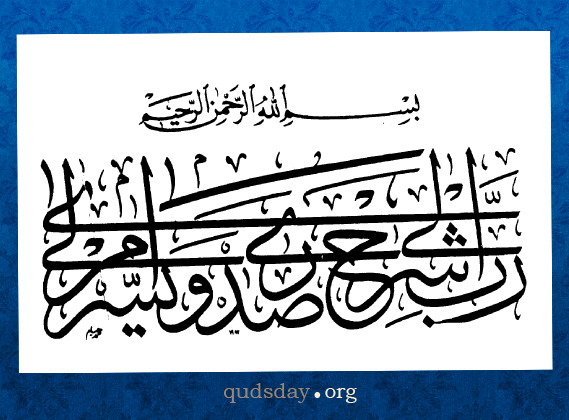 بسم الله الرحمن الرحيم
رب اشرح لی صدری و یسر لی امری
qudsday.org